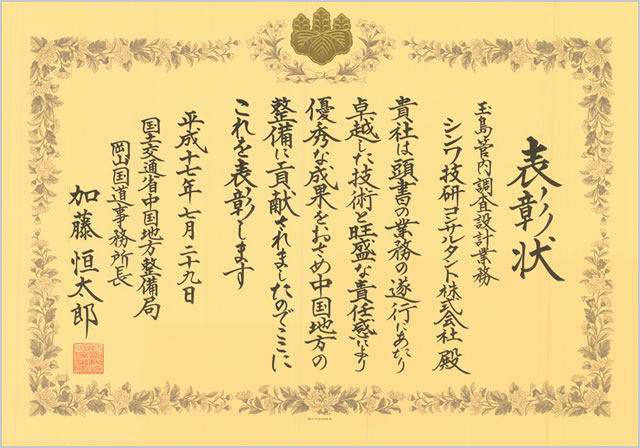 表彰状
玉島管内調査設計業務
シンワ技研コンサルタント株式会社 殿
貴社は頭書の業務の遂行にあたり
卓越した技術と旺盛な責任感により
優秀な成果をおさめ中国地方の
整備に貢献されましたのでここに
これを表彰します
平成十七年七月二十九日
国土交通省中国地方整備局
岡山国道事務所長
加藤恒太郎